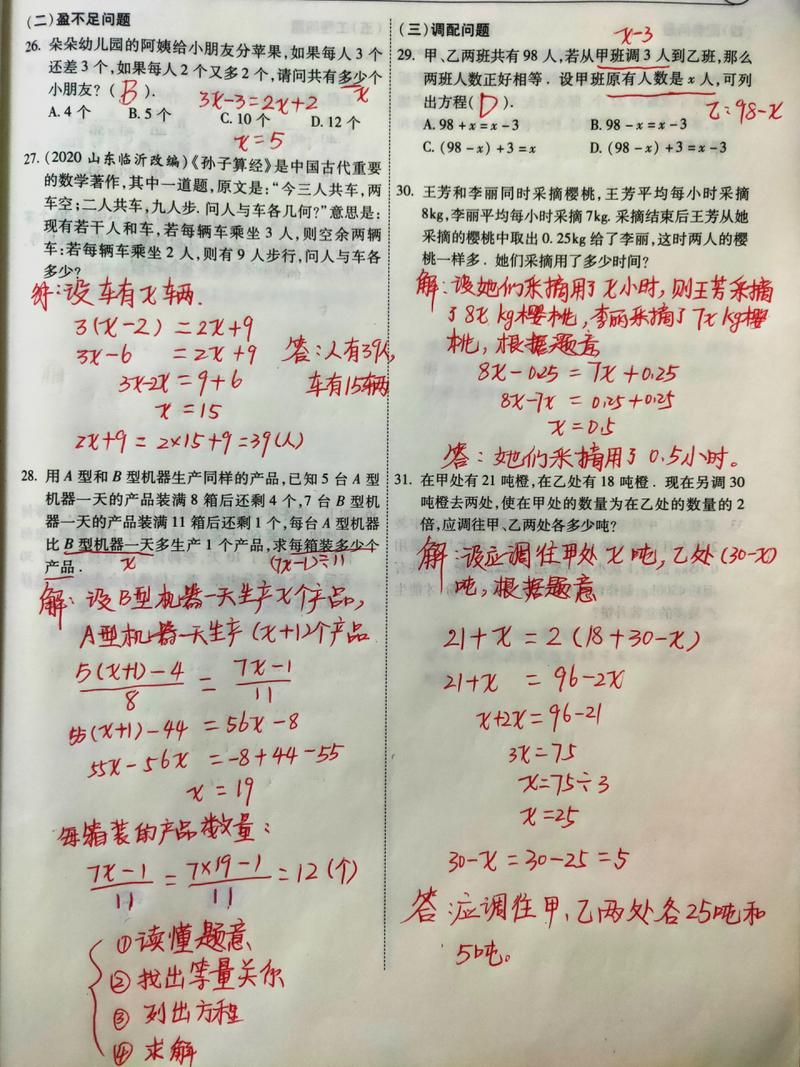 (二)盈不足问题
26. 朵朵幼儿园的阿姨给小朋友分苹果,如果每人3个
还差3个,如果每人2个又多2个,请问共有多少个
小朋友?( B ).
x
3x-3=2x+2
A. 4个 B. 5个 C. 10个 D. 12个
x=5
27. (2020山东临沂改编)《孙子算经》是中国古代重要
的数学著作,其中一道题,原文是:“今三人共车,两
车空;二人共车,九人步. 问人与车各几何?”意思是:
现有若干人和车,若每辆车乘坐3人,则空余两辆
车;若每辆车乘坐2人,则有9人步行,问人与车各
多少?
解:设车有x辆.
3(x-2)=2x+9
3x-6=2x+9
3x-2x=9+6
x=15
2x+9=2×15+9=39(人)
答:人有39人,
车有15辆
28. 用A型和B型机器生产同样的产品,已知5台A型
机器一天的产品装满8箱后还剩4个,7台B型机
器一天的产品装满11箱后还剩1个,每台A型机器
比B型机器一天多生产1个产品,求每箱装多少个
x
(7x-1)÷11
产品.
解:设B型机器一天生产x个产品,
A型机器一天生产(x+1)个产品
5(x+1)-4/8=7x-1/11
55(x+1)-44=56x-8
55x-56x=-8+44-55
x=19
每箱装的产品数量:
7x-1/11=7×19-1/11=12(个)
①读懂题意
②找出等量关系
③列出方程
④求解
(三)调配问题
x-3
29. 甲、乙两班共有98人,若从甲班调3人到乙班,那么
两班人数正好相等. 设甲班原有人数是x人,可列
出方程( D ).
乙:98-x
A. 98+x=x-3 B. 98-x=x-3
C. (98-x)+3=x D. (98-x)+3=x-3
30. 王芳和李丽同时采摘樱桃,王芳平均每小时采摘
8kg,李丽平均每小时采摘7kg. 采摘结束后王芳从她
采摘的樱桃中取出0.25kg给了李丽,这时两人的樱
桃一样多. 她们采摘用了多少时间?
解:设她们采摘用了x小时,则王芳采摘
了8x kg樱桃,李丽采摘了7x kg樱
桃,根据题意
8x-0.25=7x+0.25
8x-7x=0.25+0.25
x=0.5
答:她们采摘用了0.5小时。
31. 在甲处有21吨橙,在乙处有18吨橙. 现在另调30
吨橙去两处,使在甲处的数量为在乙处的数量的2
倍,应调往甲、乙两处各多少吨?
解:设应调往甲处x吨,乙处(30-x)
吨,根据题意
21+x=2(18+30-x)
21+x=96-2x
x+2x=96-21
3x=75
x=75÷3
x=25
30-x=30-25=5
答:应调往甲、乙两处各25吨和
5吨。